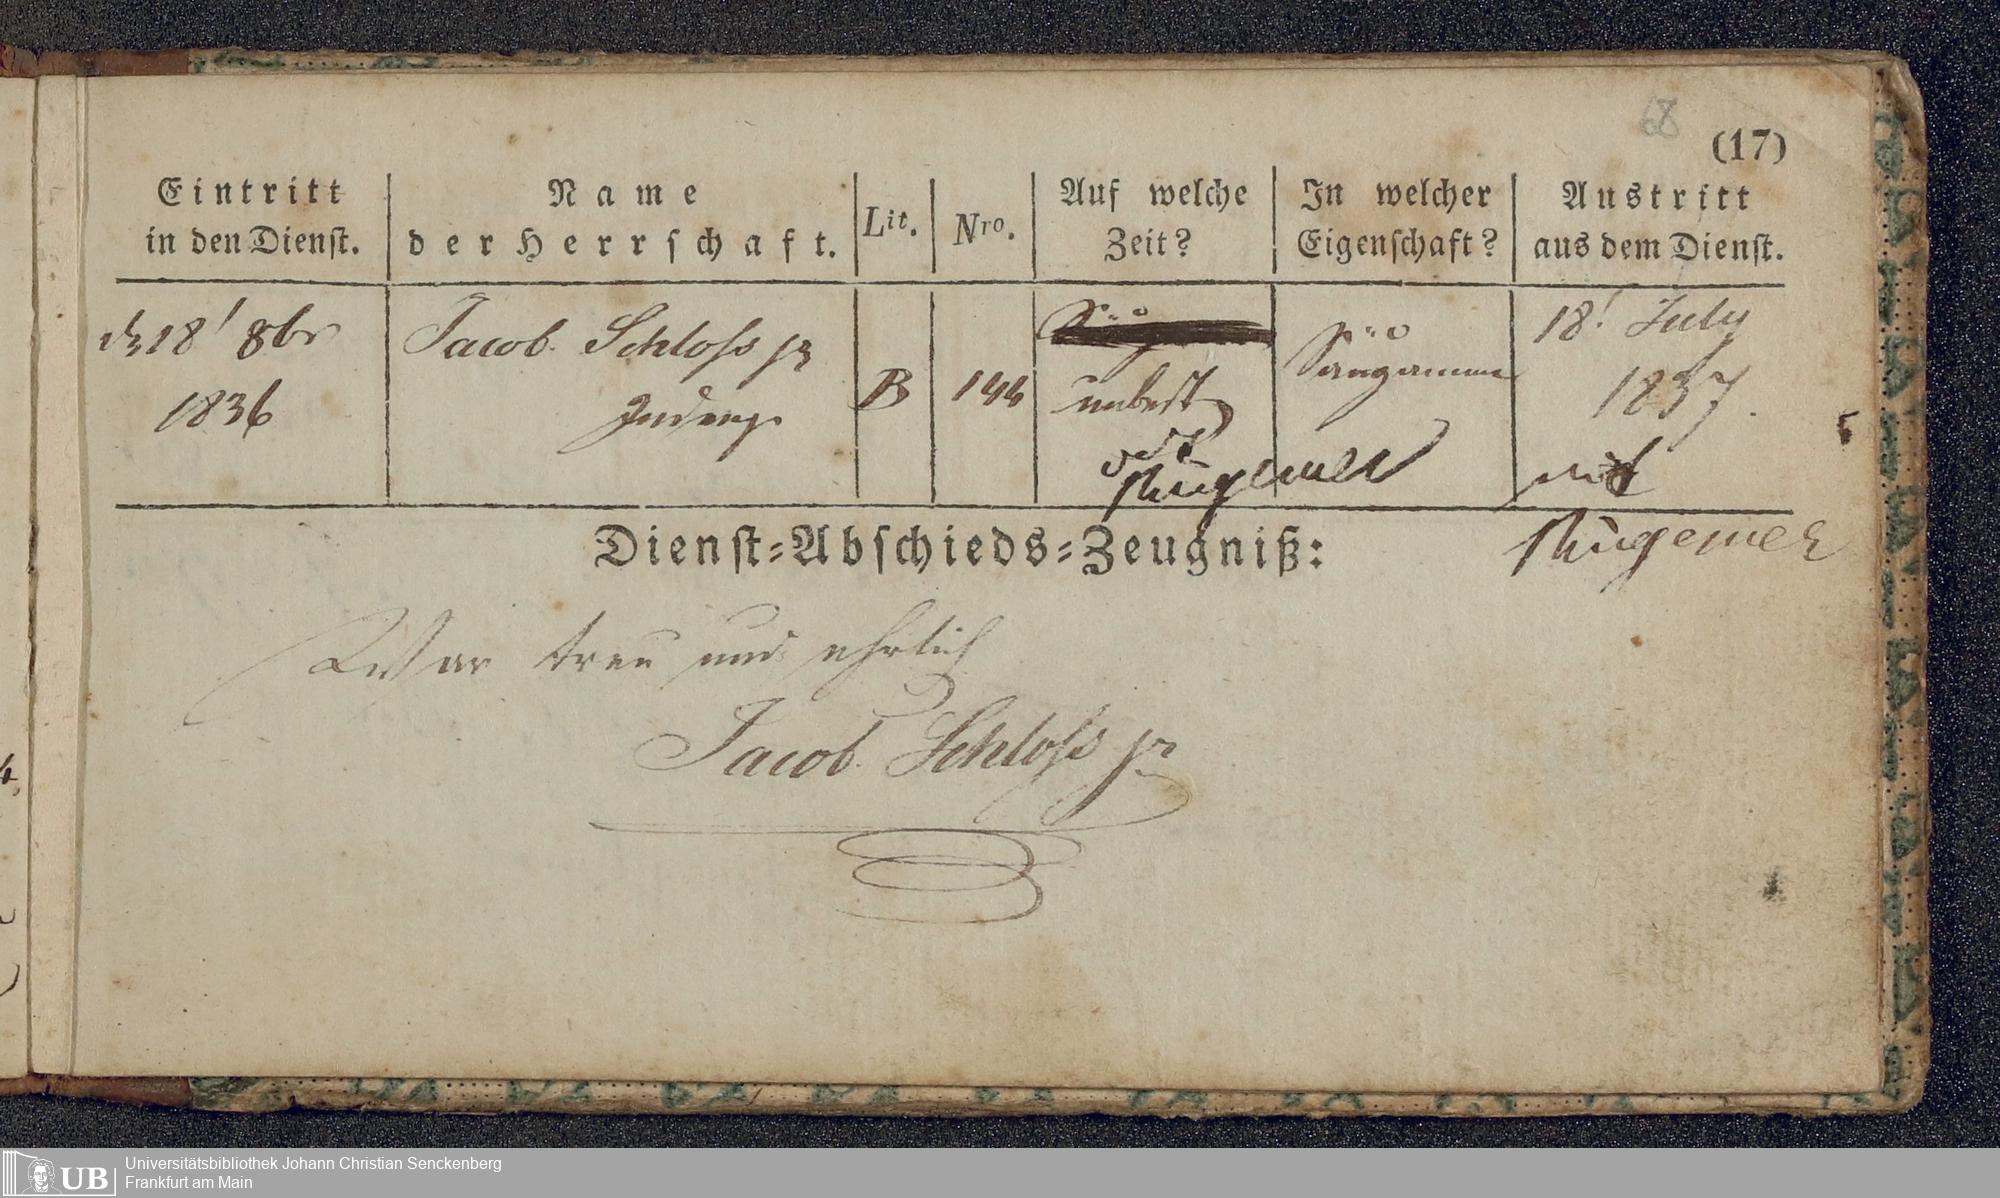 68
(17)
Eintritt
in den Dienst.
Name
der Herrschaft.
Lit.
Nro.
Auf welche
Zeit?
In welcher
Eigenschaft?
Austritt
aus dem Dienst.
18' 8br
1836
Jacob Schloss jr
Judeng.
B
144
unbest
Säugamme
18! July
1837.
Dienst-Abschieds-Zeugniß:
War treu und ehrlich
Jacob Schloss jr
UB
Universitätsbibliothek Johann Christian Senckenberg
Frankfurt am Main